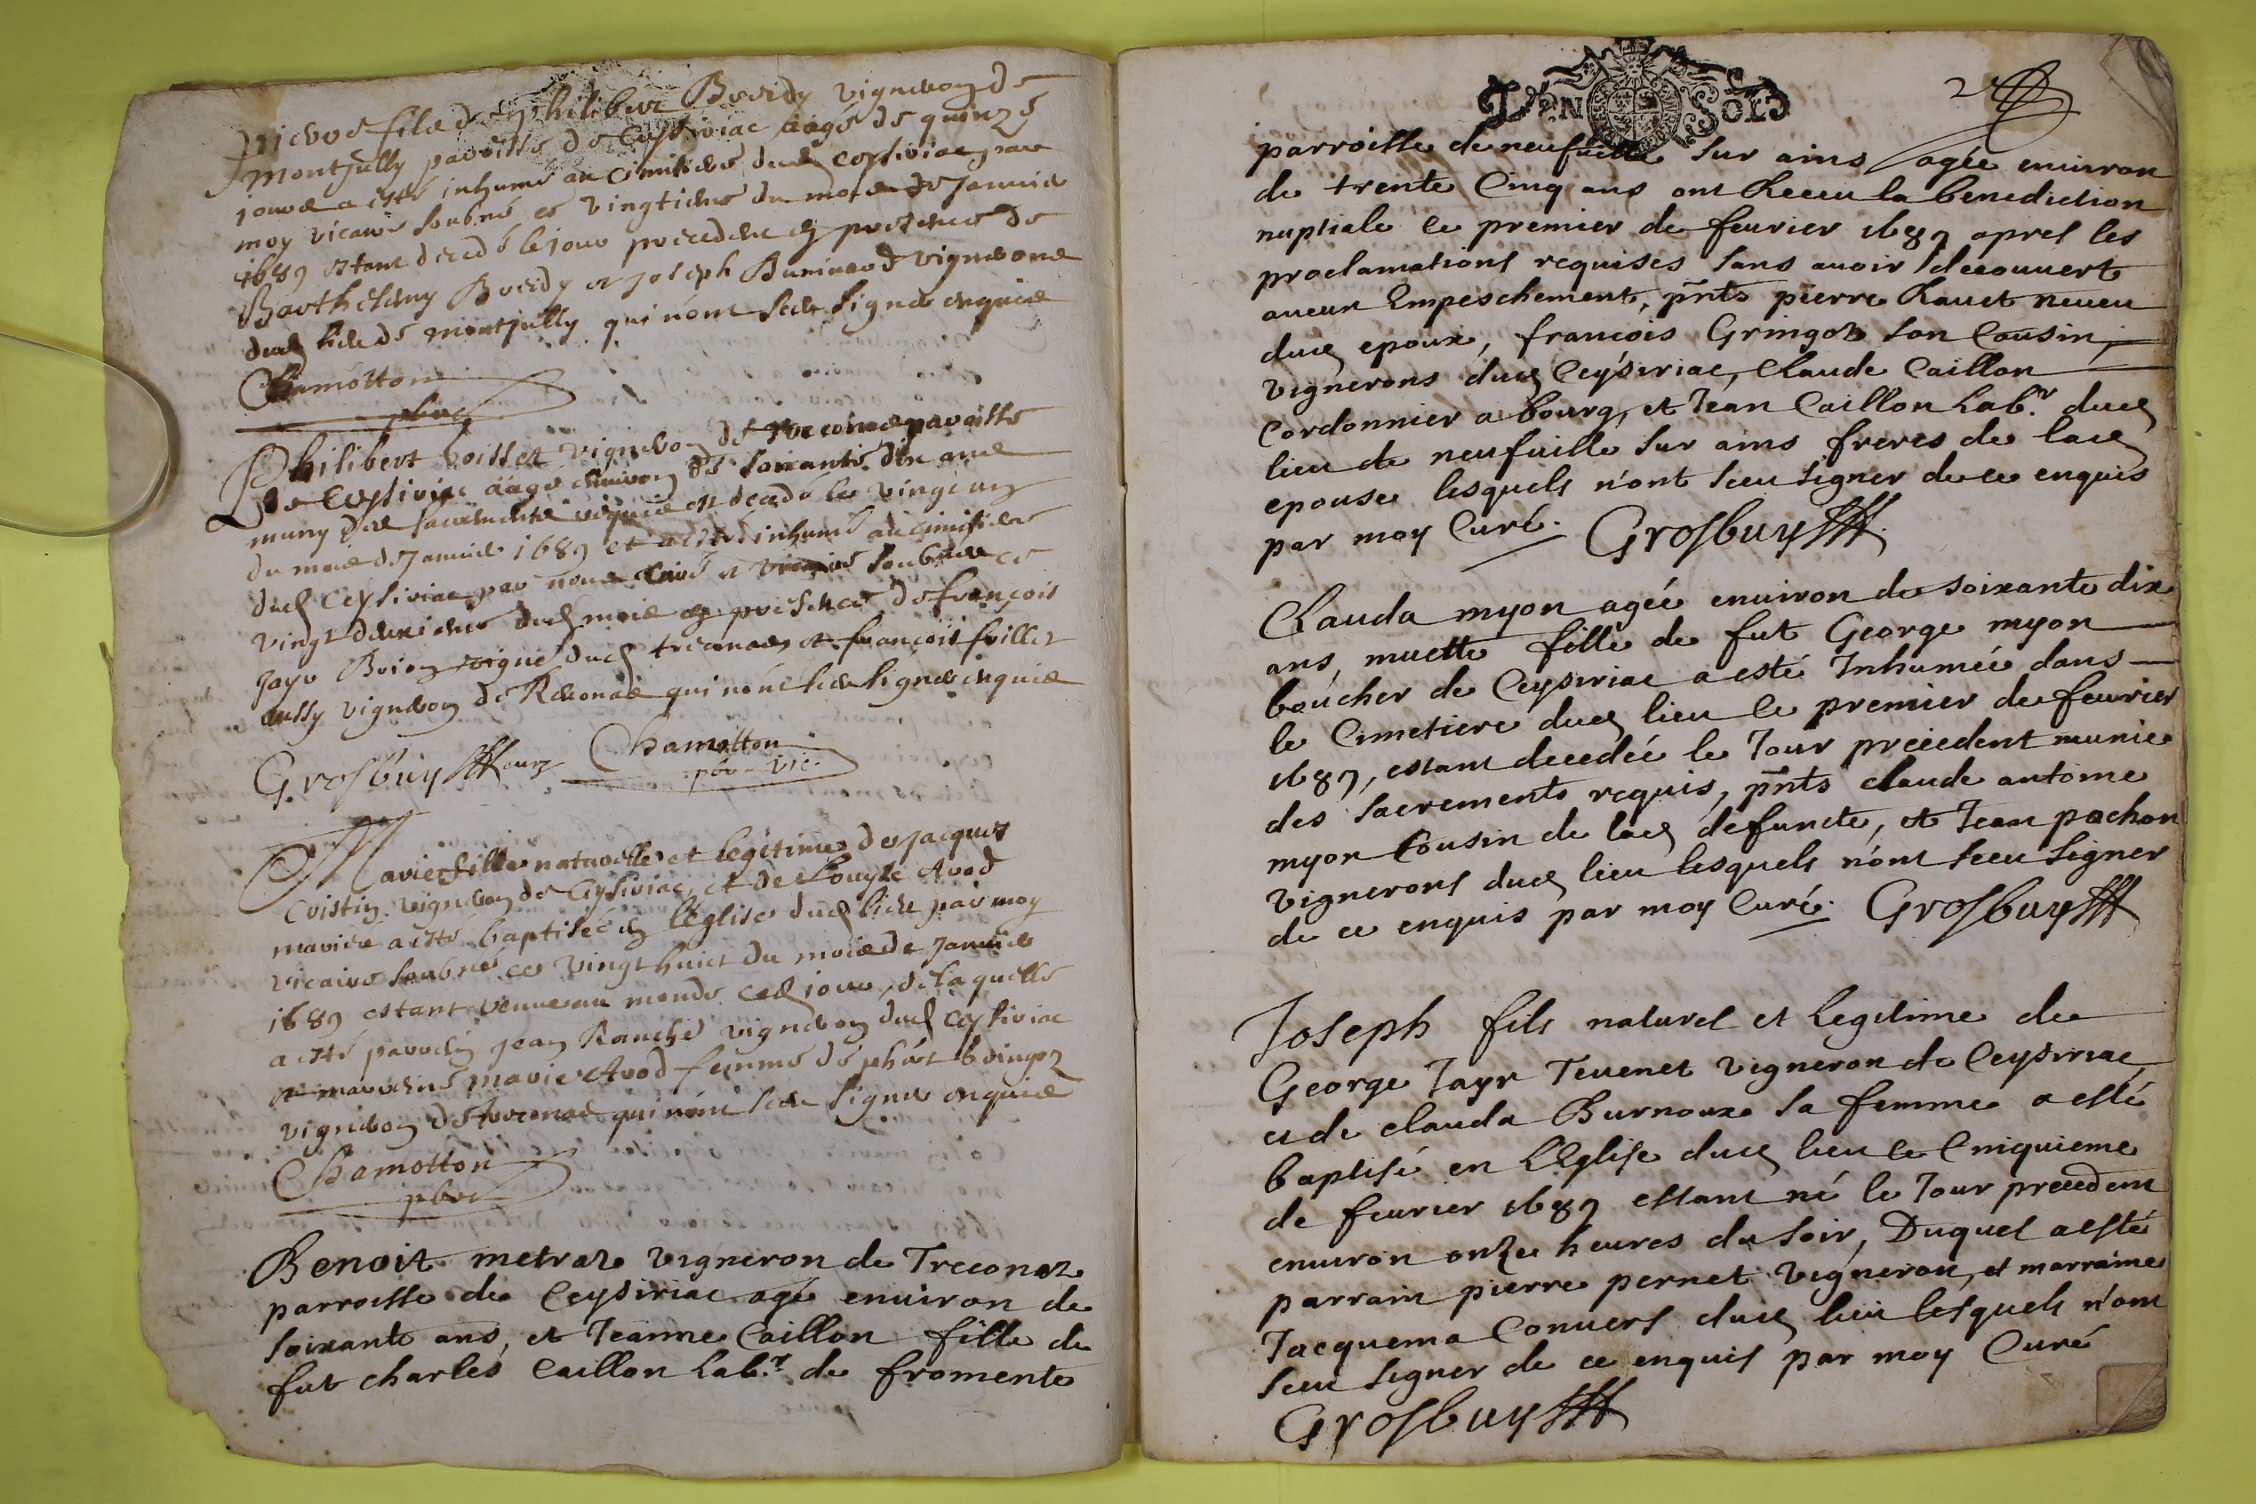 pierre fils de philibert Buerdy vigneron de
montjully paroisse de Ceysiriac aagé de quinze
jours a esté inhumé au cimistere dud ceysiriac par
moy vicaire soubné ce vingtieme du mois de Janvie
1689 estant decedé le jour precedent en presence de
Barthelemy Buerdy et Joseph vignerons
dud lieu de montjully qui nont sceu signer enquis
Chamotton
pbre
Philibert vigneron de paroisse
de Ceysiriac aagé environ de soixante dix ans
muny des sacrements requis est decedé le vingt un
du mois de Janvie 1689 et a esté inhumé au cimistere
dud Ceysiriac par nous curé et vicaire soubnes ce
vingt deuxieme dud mois en presence de françois
Jayr vigne dud treconas et françois
aussy vigneron de qui nont sceu signer enquis
Grosbuy cure Chamotton
pbr vic.
Marie fille naturelle et legitime de Jacques
Cristin vigneron de Ceysiriac, et de Louyse Avod
mariés a esté baptisée en l'église dud lieu par moy
vicaire soubné ce vingt huict du mois de Janvie
1689 estant venue au monde ced jour, de laquelle
a esté parrein Jean vigneron dud ceysiriac
et marreine marie Avod femme de phbert
vigneron de treconas qui nont sceu signer enquis
Chamotton
pbre
Benoit metraz vigneron de Treconaz
parroisse de Ceysiriac agé environ de
soixante ans, et Jeanne Caillon fille de
fut charles Caillon Lab.r de fromente
DEN SOLS
2
parroisse de neufuille sur ains agée environ
de trente Cinq ans ont Receu la benediction
nuptiale le premier de feurier 1689 apres les
proclamations requises sans auoir decouvert
aucun Empeschement, pnts pierre Rauet neueu
dud epoux, francois Gringoz son Cousin,
vignerons dud Ceysiriac, Claude Caillon
Cordonnier a bourg, et Jean Caillon Lab.r dud
lieu de neufuille sur ains freres de lad
epouse lesquels n'ont sceu signer de ce enquis
par moy Curé. Grosbuy
Clauda myon agée enuiron de soixante dix
ans, muette fille de fut George myon
boucher de Ceysiriac a esté Inhumée dans
le Cimetiere dud lieu le premier de feurier
1689, estant decedée le Jour precedent munie
des sacrements requis, pnts claude antoine
myon Cousin de lad defuncte, et Jean pochon
vignerons dud lieu lesquels n'ont sceu signer
de ce enquis par moy Curé. Grosbuy
Joseph fils naturel et Legitime de
George Jayr Teuenet vigneron de Ceysiriac
et de clauda Burnoux sa femme a esté
baptisé en L'Eglise dud lieu le Cinquieme
de feurier 1689 estant né le Jour precedent
enuiron onze heures du soir, Duquel a esté
parrain pierre pernet vigneron, et marraine
Jacquema Conuers dud lieu lesquels n'ont
sceu signer de ce enquis par moy Curé
Grosbuy